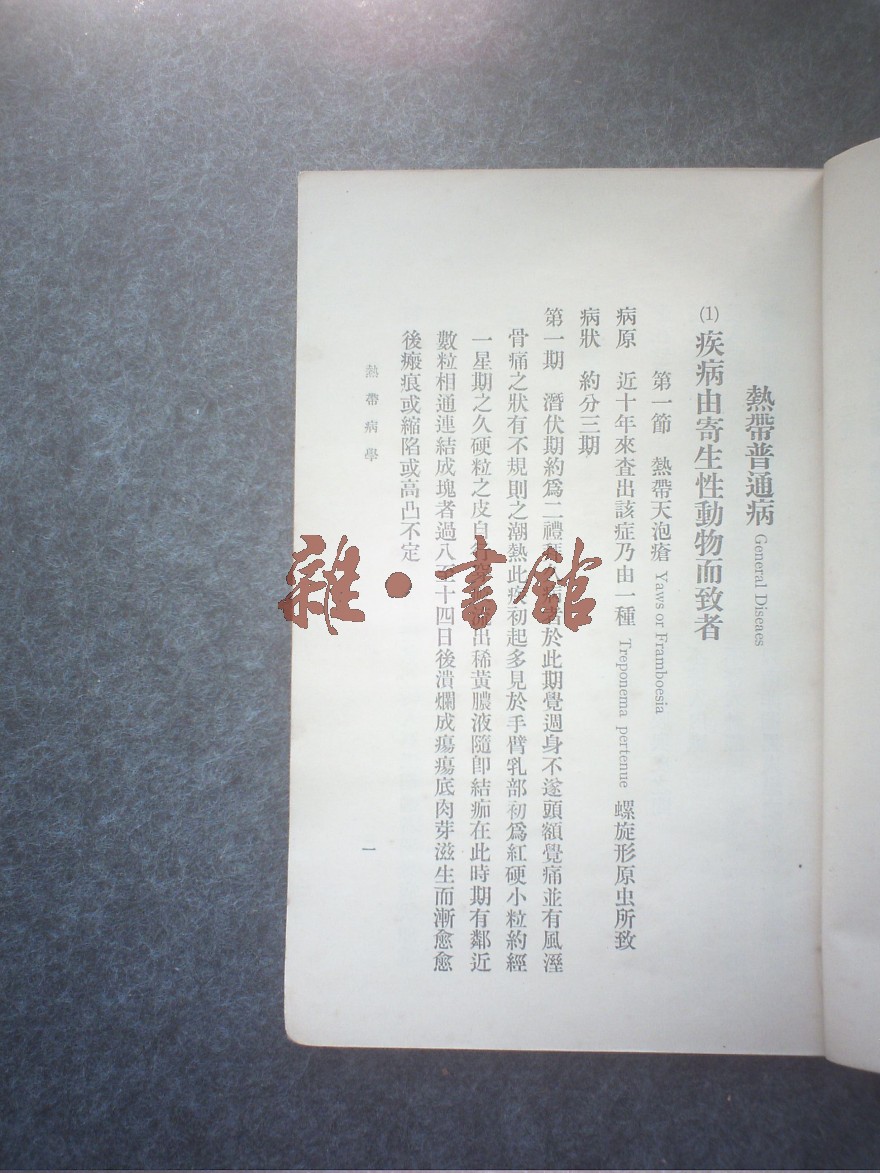 熱帶普通病 General Diseaes
(1) 疾病由寄生性動物而致者
第一節 熱帶天泡瘡 Yaws or Framboesia
病原 近十年來査出該症乃由一種 Treponema pertenue 螺旋形原虫所致
病狀 約分三期
第一期 潛伏期約爲二禮於此期覺週身不遂頭額覺痛並有風溼
骨痛之狀有不規則之潮熱此疾初起多見於手臂乳部初爲紅硬小粒約經
一星期之久硬粒之皮自行出稀黃膿液隨卽結痂在此時期有鄰近
數粒相通連結成塊者過八至十四日後潰爛成瘍瘍底肉芽滋生而漸愈愈
後瘢痕或縮陷或高凸不定
熱帶病學
一
雜·書館